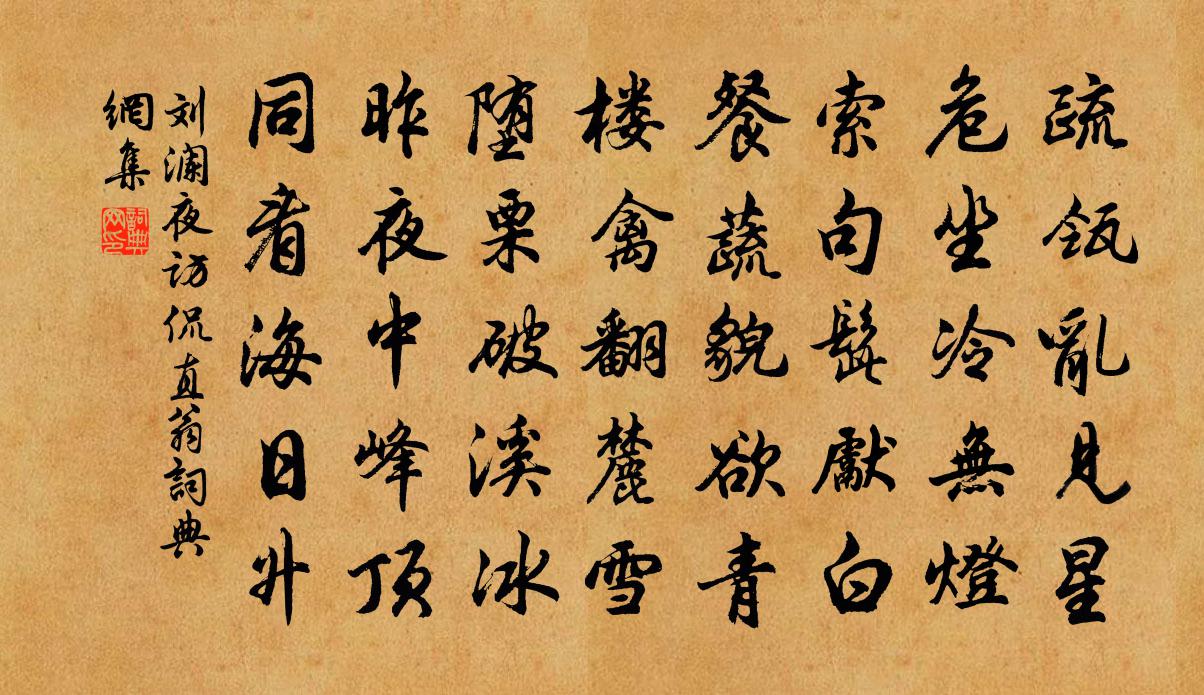 疏瓴亂見星
危坐冷無燈
索句髭獻白
餐蔬貌欲青
楼禽翻麓雪
堕栗破溪冰
昨夜中峰顶
同看海日升
刘澜夜访侃直翁詞典
網集
詞典網印